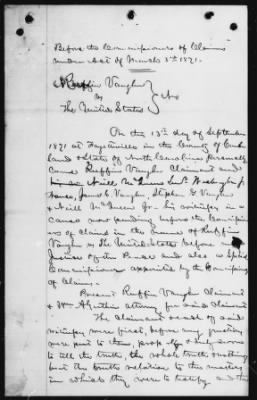 Before the Commissioners of Claims
under Act of March 3rd 1871.
Ruffin Vaughn
vs
The United States
No
On the 13th day of September
1871 at Fayetteville in the County of Cumber
land & State of North Carolina personally
came Ruffin Vaughn Claimant and
Neill McQueen Senr Washington J.
James C. Vaughn, Stephen G. Vaughn
& Neill McQueen Jr his witnesses in a
cause now pending before the Commission
ers of Claims in the name of Ruffin
Vaughn vs The United States before me
Justice of the Peace and also a Special
Commissioner appointed by the Commissioners
of Claims.
Present Ruffin Vaughn Claimant
& Wm attorney for said Claimant
The Claimant & each of said
witnesses were first, before any question
were put to them, properly & duly sworn
to tell the truth, the whole truth & nothing
but the truth relative to the matters
in which they were to testify and the